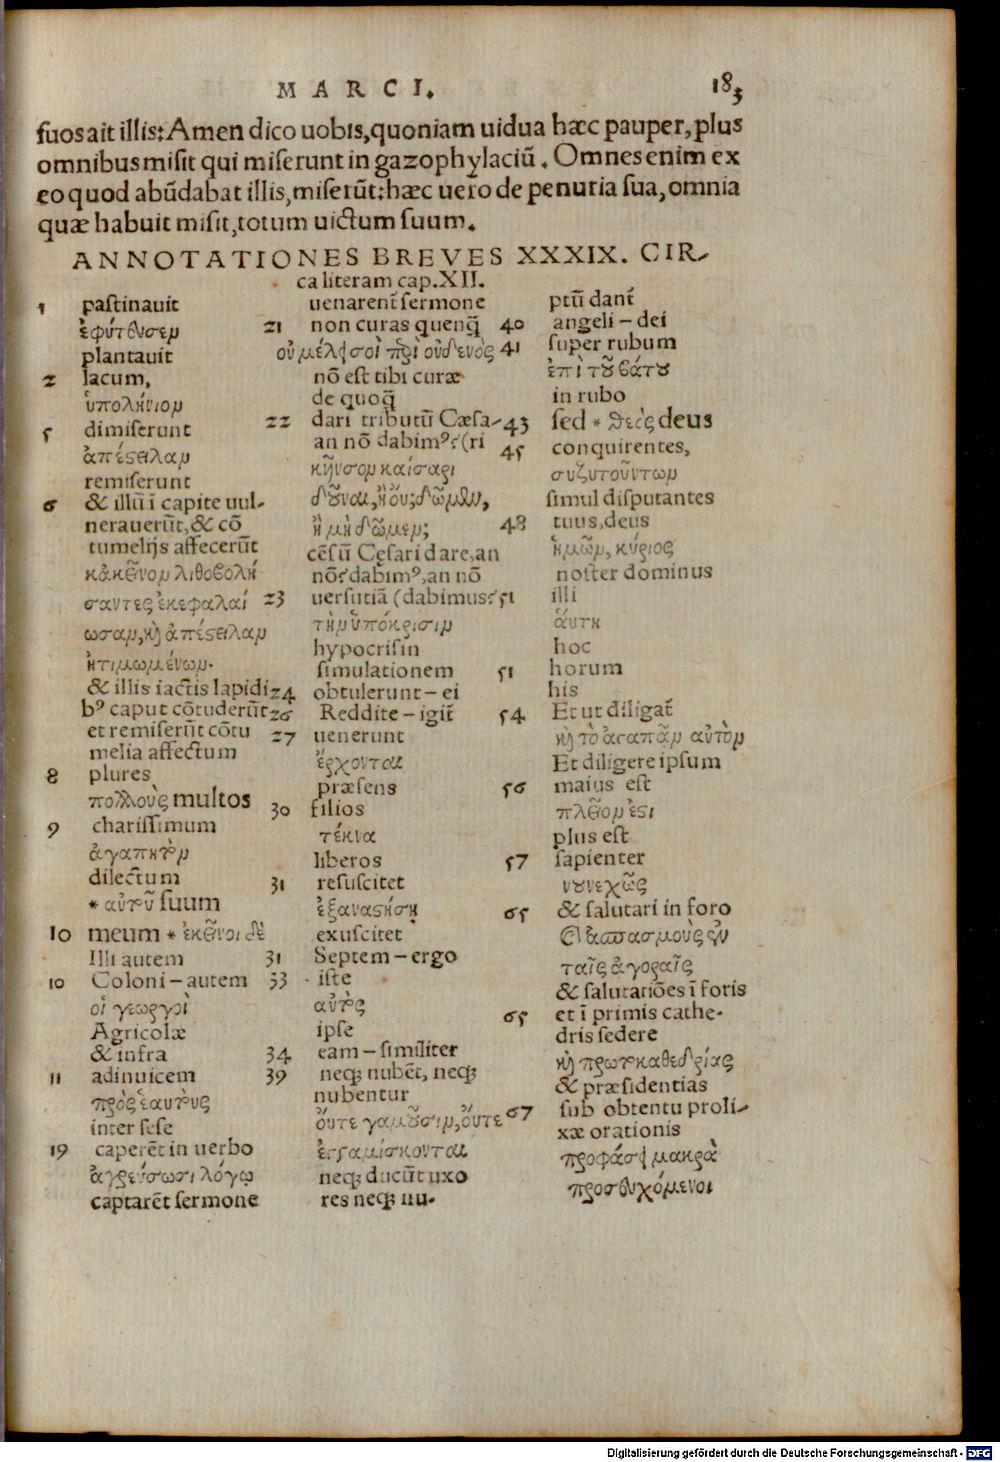 MARCI. 183
suos ait illis: Amen dico uobis, quoniam uidua hæc pauper, plus
omnibus misit qui miserunt in gazophylaciũ. Omnes enim ex
eo quod abũdabat illis, miserũt: hæc uero de penuria sua, omnia
quæ habuit misit, totum uictum suum.
ANNOTATIONES BREVES XXXIX. CIR-
ca literam cap. XII.
1 pastinauit
ἐφύτευσεν
plantauit
2 lacum,
ὑπολήνιον
5 dimiserunt
ἀπέστειλαν
remiserunt
6 & illũ ĩ capite uul-
nerauerũt, & cõ
tumelijs affecerũt
κἀκεῖνον λιθοβολή
σαντες ἐκεφαλαί
ωσαν, καὶ ἀπέστειλαν
ἠτιμωμένων.
& illis iactis lapidi
bꝰ caput cõtuderũt
et remiserũt cõtu
melia affectum
8 plures
πολλοὺς multos
9 charissimum
ἀγαπητὸν
dilectum
* αὐτοῦ suum
10 meum * ἐκεῖνοι δὲ
Illi autem
10 Coloni – autem
οἱ γεωργοὶ
Agricolæ
& infra
11 adinuicem
πρὸς ἑαυτοὺς
inter sese
19 caperẽt in uerbo
ἀγρεύσωσι λόγῳ
captarẽt sermone
uenarent sermone
21 non curas quenq̃
οὐ μέλησοὶ περὶ οὐδενὸς
nõ est tibi curæ
de quoq̃
22 dari tributũ Cæsa-
an nõ dabimꝰ? (ri
κῆνσον καίσαρι
δοῦναι, ἢ οὔ; δῶμεν,
ἢ μὴ δῶμεν;
cẽsũ Cęsari dare, an
nõ? dabimꝰ, an nõ
23 uersutiã (dabimus?
τὴν ὑπόκρισιν
hypocrisin
simulationem
24 obtulerunt – ei
26 Reddite – igit̃
27 uenerunt
ἔρχονται
præsens
30 filios
τέκνα
liberos
31 resuscitet
ἐξαναστήσῃ
exuscitet
31 Septem – ergo
33 iste
αὐτὸς
ipse
34 eam – similiter
39 neqꝫ nubẽt, neqꝫ
nubentur
οὔτε γαμοῦσιν, οὔτε
ἐγγαμίσκονται
neqꝫ ducũt uxo
res neqꝫ nu-
ptũ dant̃
40 angeli – dei
41 super rubum
ἐπὶ τοῦ βάτου
in rubo
43 sed * θεὸς deus
45 conquirentes,
συζητούντων
simul disputantes
48 tuus, deus
ἡμῶν, κύριος
noster dominus
51 illi
αὕτη
hoc
51 horum
his
54 Et ut diligat̃
καὶ τὸ ἀγαπᾶν αὐτὸν
Et diligere ipsum
56 maius est
πλεῖον ἐστι
plus est
57 sapienter
νουνεχῶς
65 & salutari in foro
καὶ ἀσπασμοὺς ἐν
ταῖς ἀγοραῖς
& salutatiões ĩ foris
65 et ĩ primis cathe-
dris sedere
καὶ πρωτοκαθεδρίας
& præsidentias
67 sub obtentu proli-
xæ orationis
προφάσει μακρὰ
προσευχόμενοι
Digitalisierung gefördert durch die Deutsche Forschungsgemeinschaft - DFG